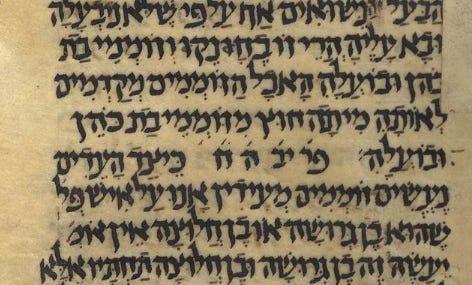 הבעל נשואים אף על פי שלא נבעלה
הבא עליה הרי זו בחנק וזוממי בת
כהן ובועלה שכל הזוממים מקדמים
לאותה מיתה חוץ מזוממי בת כהן
ובועלה פי יב ה ח כיצד העדים
נעשים זוממים מעידין אנו על איש פל
שהוא בן גרושה או בן חלוצה אין אומ
יעשה זה בן גרושה ובן חלוצה תחתיו אלא